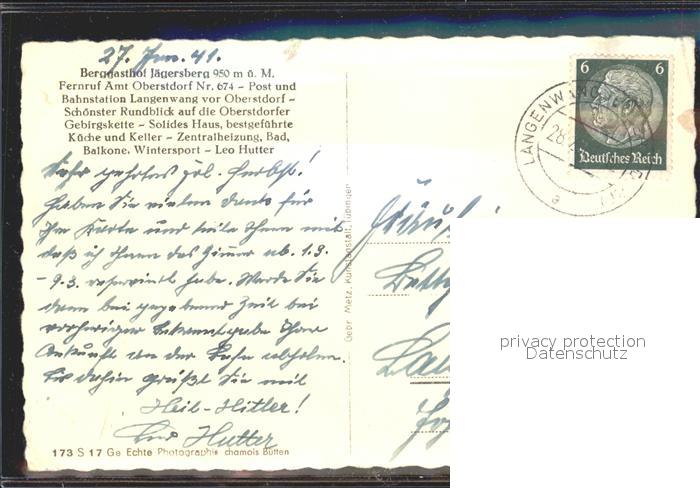 27. Jan. 41.
Berggasthof Jägersberg 950 m ü. M.
Fernruf Amt Oberstdorf Nr. 674 – Post und
Bahnstation Langenwang vor Oberstdorf –
Schönster Rundblick auf die Oberstdorfer
Gebirgskette – Solides Haus, bestgeführte
Küche und Keller – Zentralheizung, Bad,
Balkone. Wintersport – Leo Hutter
Sehr geehrtes Frl. Herbst!
Haben Sie vielen Dank für
Ihre Karte und teile Ihnen mit
daß ich Ihnen das Zimmer ab. 1.3.
- 9.3. reserviert habe. Werde Sie
dann bei gegebener Zeit bei
vorheriger Bekanntgabe Ihrer
Ankunft von der Bahn abholen.
Bis dahin grüßt Sie mit
Heil-Hitler!
Leo Hutter
173 S 17 Ge Echte Photographie chamois Bütten
Gebr. Metz, Kunstanstalt, Tübingen
6 6
Deutsches Reich
LANGENWANG
28.
a
Fräul
privacy protection
Datenschutz